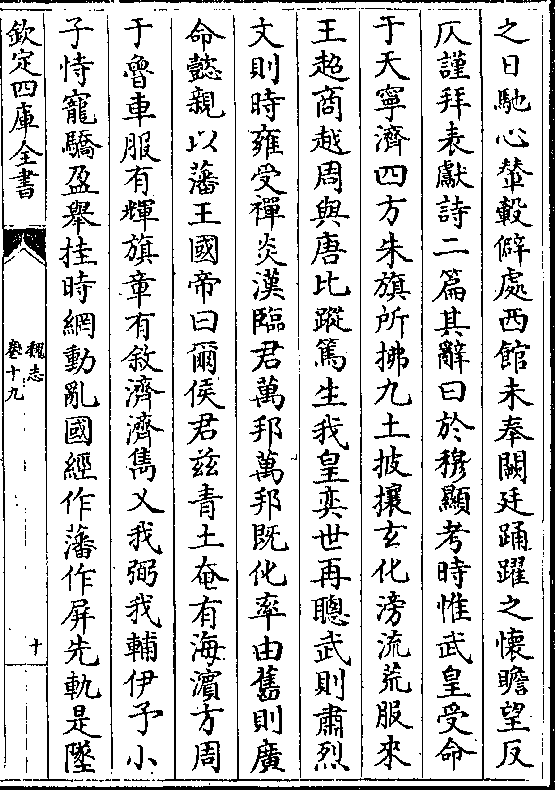 之日馳心輦轂僻處西館未奉闕廷踊躍之懷瞻望反
仄謹拜表獻詩二篇其辭曰於穆顯考時惟武皇受命
于天寧濟四方朱旗所拂九土披攘玄化滂流荒服來
王超商越周與唐比蹤篤生我皇奕世再聰武則肅烈
文則時雍受禪炎漢臨君萬邦萬邦既化率由舊則廣
命懿親以藩王國帝曰爾侯君兹青土奄有海濵方周
于魯車服有輝旗章有敘濟濟雋乂我弼我輔伊予小
子恃寵驕盈舉挂時網動亂國經作藩作屏先軌是墜
欽定四庫全書
魏志
卷十九
十